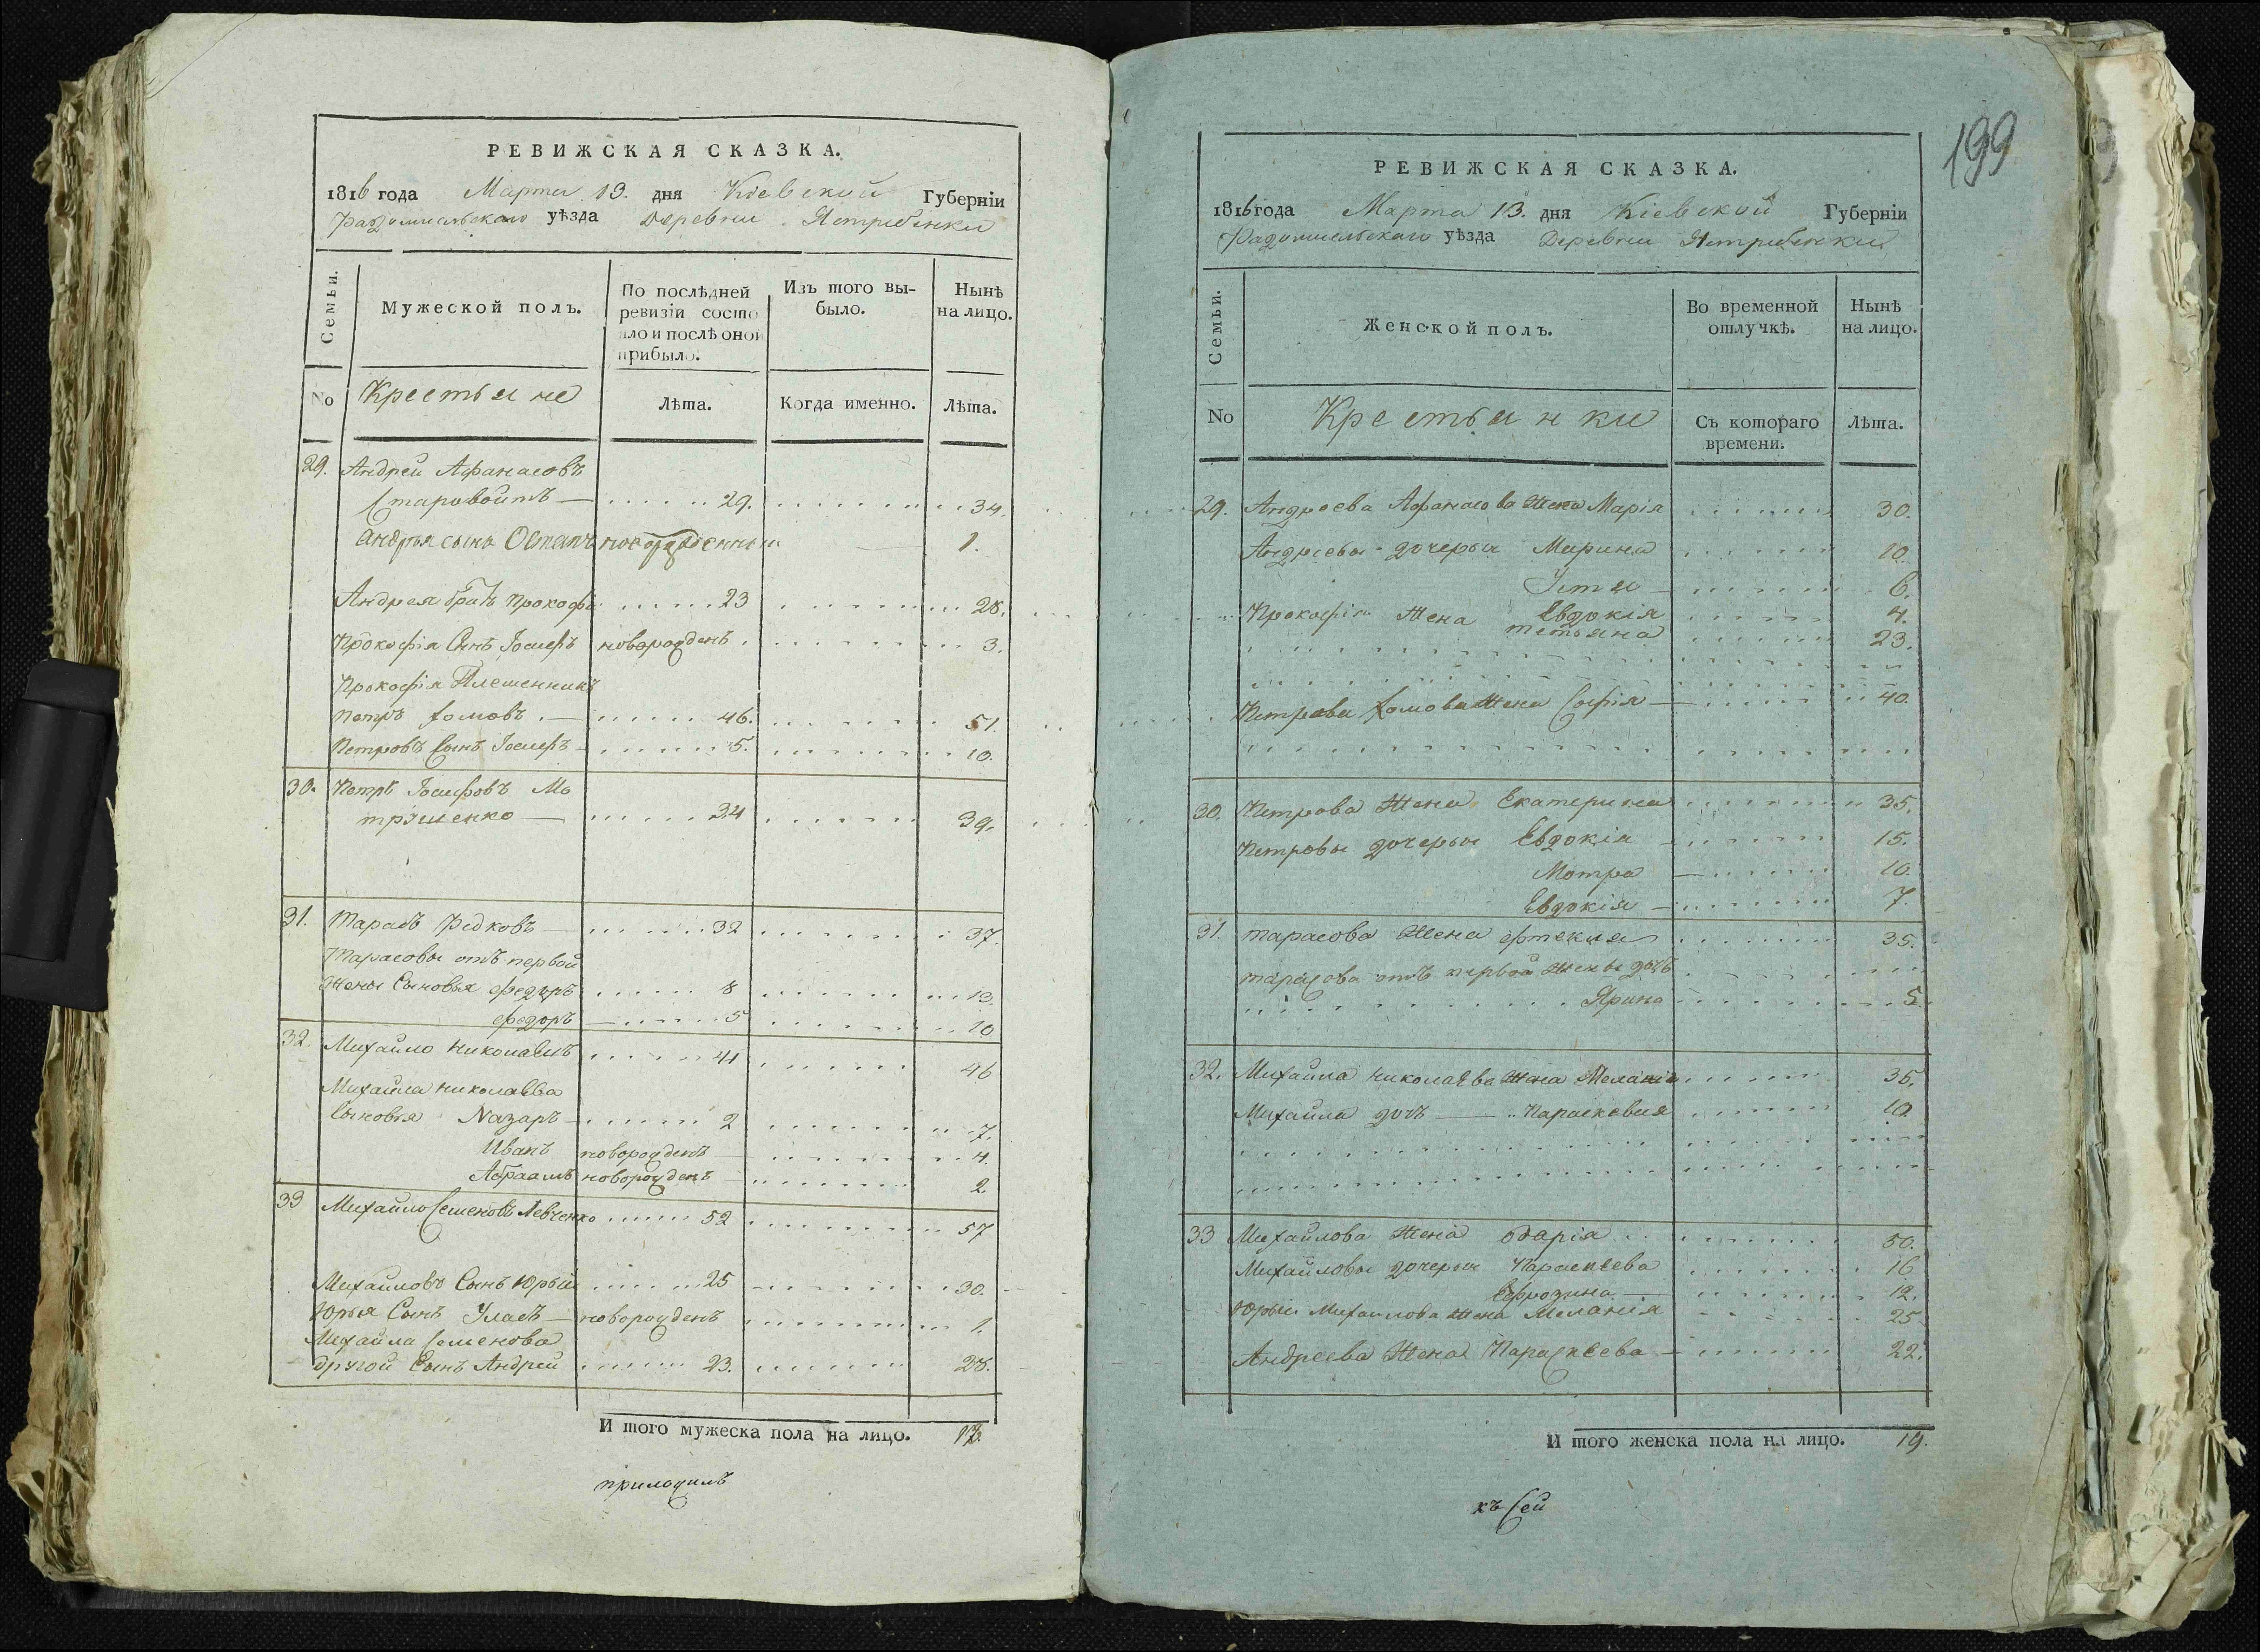 РЕВИЖСКАЯ СКАЗКА.
1816 года Марта 13. дня Кіевской Губерніи
Радомисльскаго уѣзда Деревни Ястребенки
Семьи.
Мужеской полъ.
По послѣдней ревизіи состояло и послѣ оной прибыло.
Изъ того выбыло.
Нынѣ на лицо.
No
Крестьяне
Лѣта.
Когда именно.
Лѣта.
29. Андрей Афанасовъ
Старовойтъ 29. 34.
Андрея сынъ Остапъ новорожденный 1.
Андрея братъ Прокофій 23 28.
Прокофія Сынъ Іосифъ новорожденъ 3.
Прокофія Плешенникъ
Петръ Хомовъ 46. 51.
Петровъ Сынъ Іосифъ 5. 10.
30. Петръ Іосифовъ Мо
трущенко 34 39.
31. Тарасъ Редковъ 32 37.
Тарасовы отъ первой
Жены Сыновья Федоръ 8 13.
Федоръ 5 10
32. Михайло Николаевъ 41 46
Михайла Николаева
Сыновья Nазаръ 2 7.
Иванъ новорожденъ 4.
Абраамъ новорожденъ 2.
33 Михайло Семеновъ Левченко 52 57
Михайловъ Сынъ Юрый 25 30.
Юрья Сынъ Уласъ новорожденъ 1.
Михайла Семенова
другой Сынъ Андрей 23. 28.
И того мужеска пола на лицо. 17.
приложилъ
199
РЕВИЖСКАЯ СКАЗКА.
1816 года Марта 13. дня Кіевской Губерніи
Радомисльскаго уѣзда Деревни Ястребенки
Семьи.
Женской полъ.
Во временной отлучкѣ.
Нынѣ на лицо.
No
Крестьянки
Съ котораго времени.
Лѣта.
29. Андреева Афанасова Жена Марія 30.
Андреевы дочеры Марина 10
Устя 6.
Евдокія 4.
Прокофія Жена Тетьяна 23.
Петрова Хомова Жена Софія 40.
30. Петрова Жена Екатерина 35.
Петровы дочеры Евдокія 15.
Мотра 10.
Евдокія 7.
31. Тарасова Жена 35.
Тарасова отъ первой Жены дочь
Ярина 5.
32. Михайла Николаева Жена Меланія 35.
Михайла дочъ Параскевия 10.
33 Михайлова Жена Одарія 50.
Михайловы дочеры Параскева 16
Ефрозина 12.
Юрыя Михайлова Жена Меланія 25.
Андреева Жена Параскева 22.
И того женска пола на лицо. 19.
къ Сей